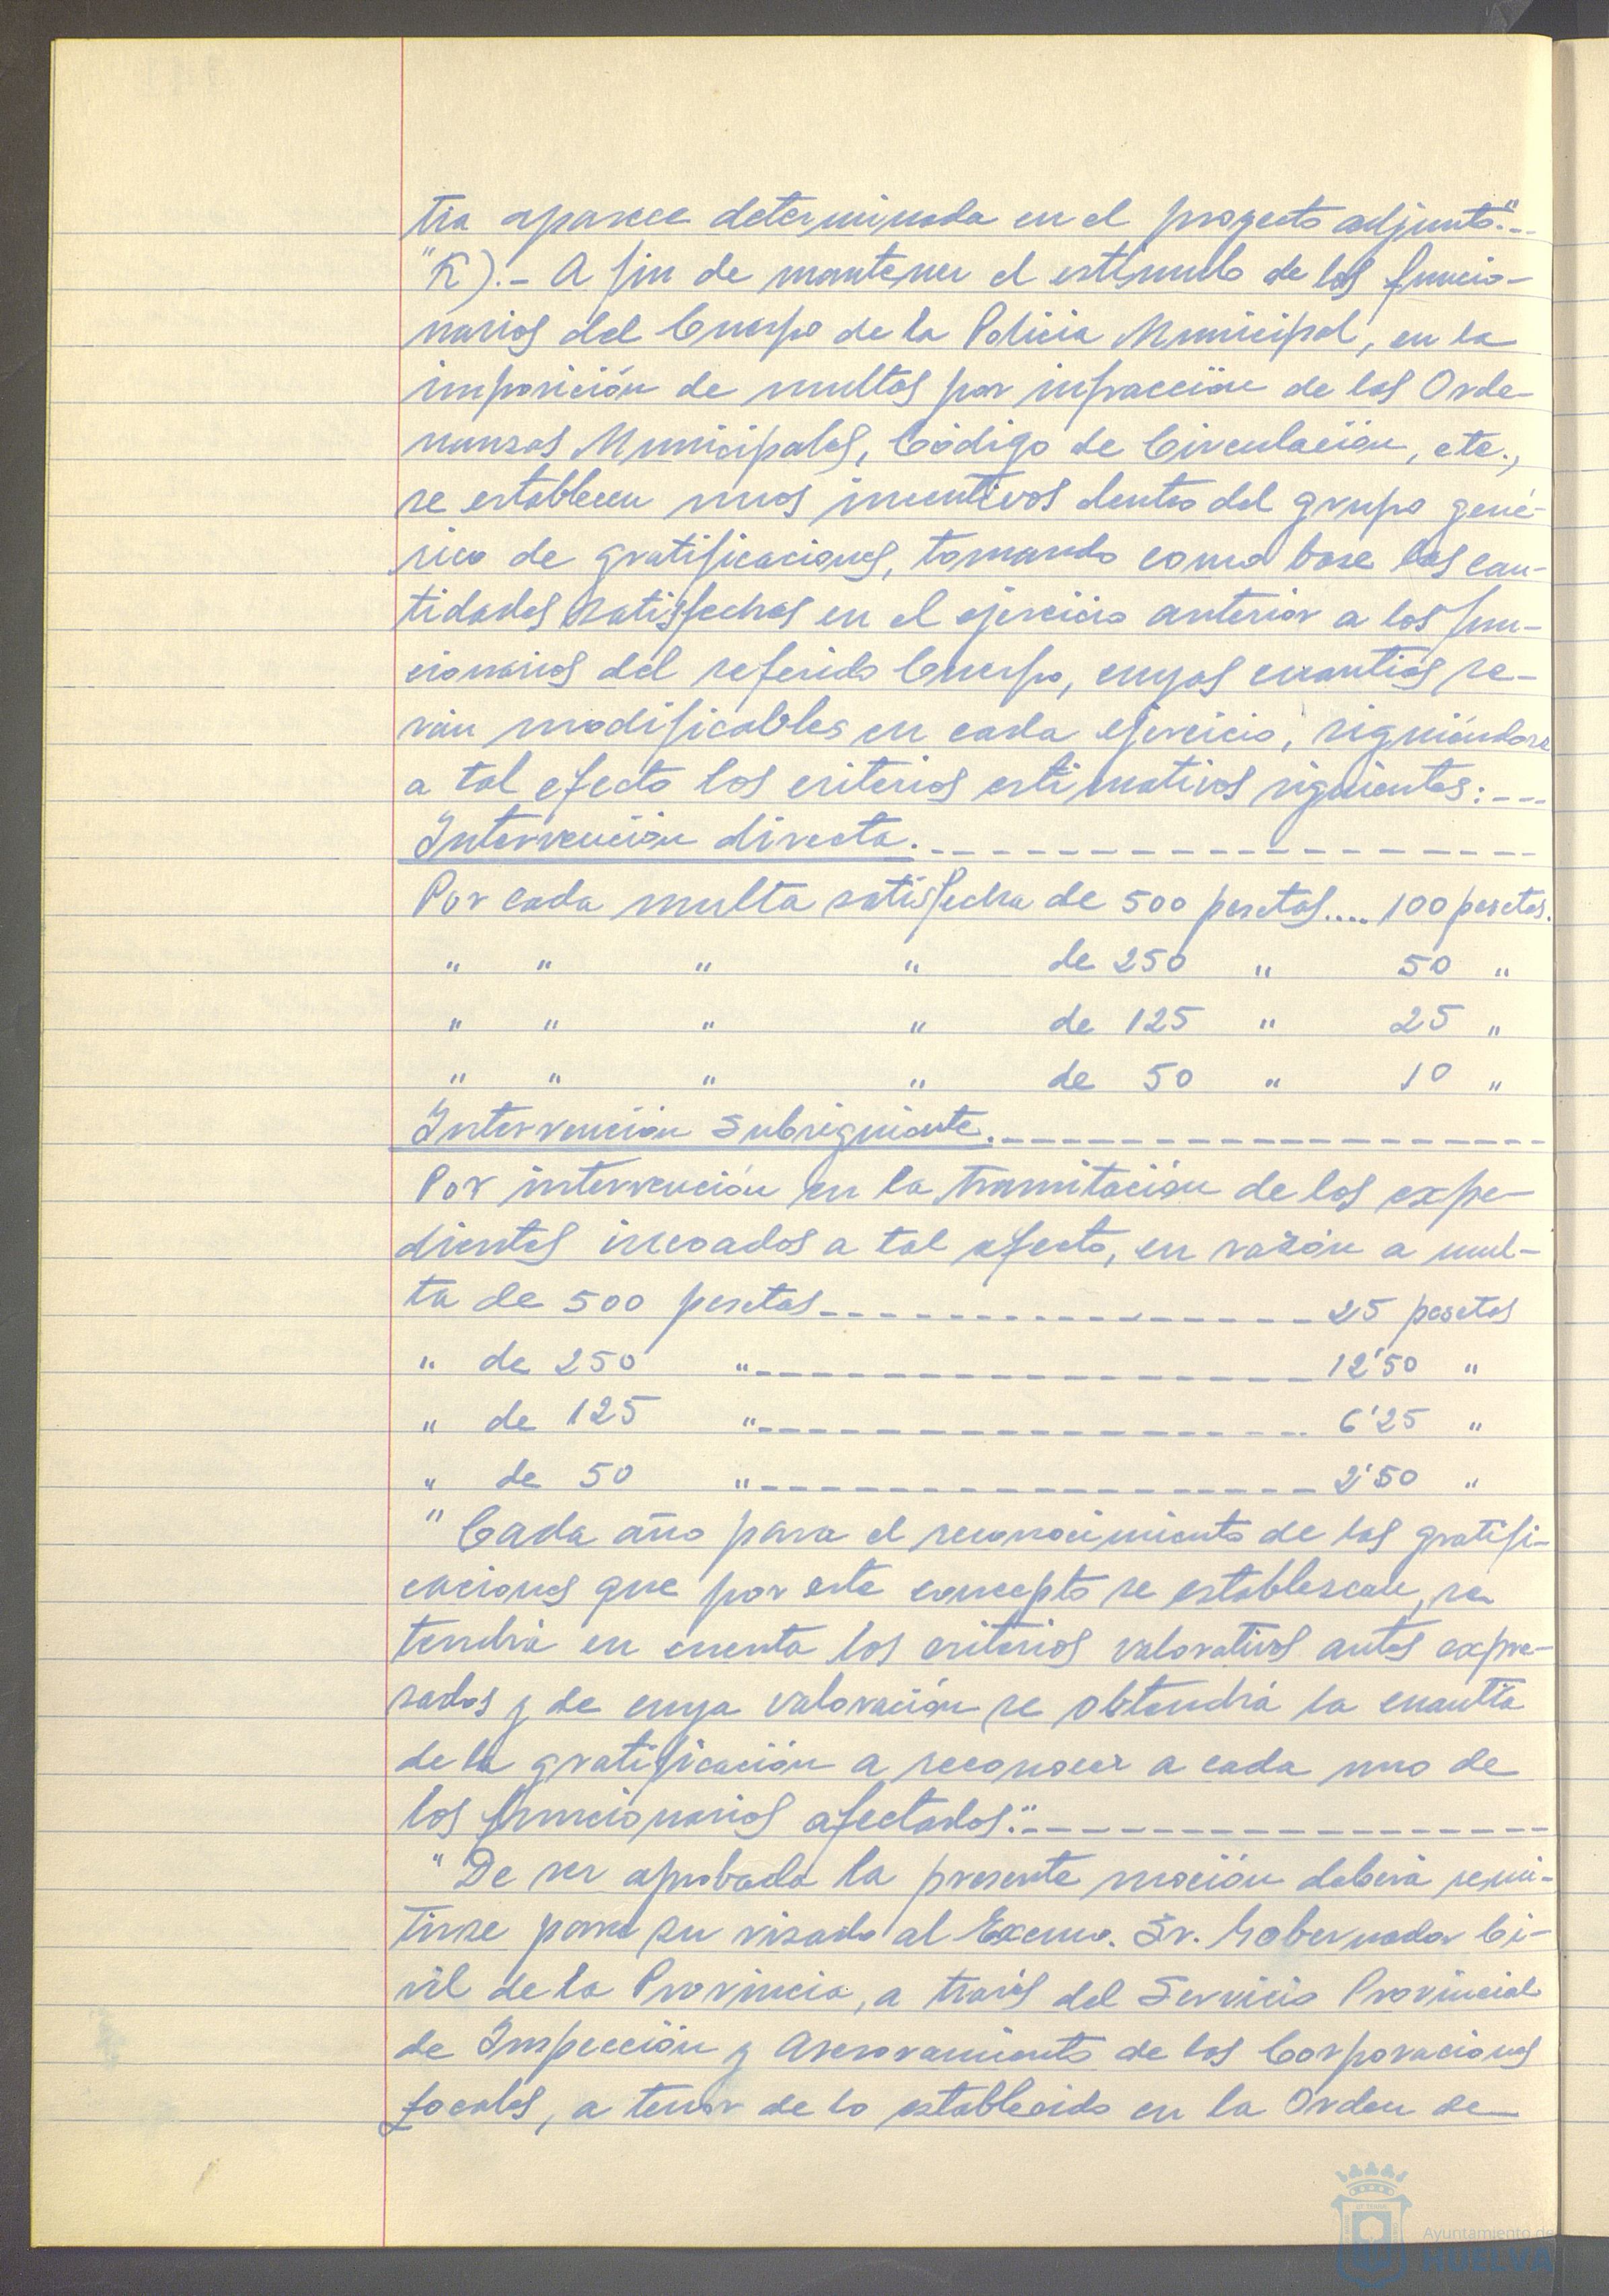 tía aparece determinada en el proyecto adjunto."---
"K).- A fin de mantener el estímulo de los funcio-
narios del Cuerpo de la Policía Municipal, en la
imposición de multas por infracción de las Orde-
nanzas Municipales, Código de Circulación, etc.,
se establecen unos incentivos dentro del grupo gené-
rico de gratificaciones, tomando como base las can-
tidades satisfechas en el ejercicio anterior a los fun-
cionarios del referido Cuerpo, cuyas cuantías se-
rán modificables en cada ejercicio, siguiéndose
a tal efecto los criterios estimativos siguientes:---
Intervención directa.------------------
Por cada multa satisfecha de 500 pesetas.... 100 pesetas.
" " " " de 250 " 50 "
" " " " de 125 " 25 "
" " " " de 50 " 10 "
Intervención Subsiguiente.------------------
Por intervención en la tramitación de los expe-
dientes incoados a tal efecto, en razón a mul-
ta de 500 pesetas---------------25 pesetas
" de 250 "-----------------12'50 "
" de 125 "-----------------6'25 "
" de 50 "-----------------2'50 "
"Cada año para el reconocimiento de las gratifi-
caciones que por este concepto se establezcan, se
tendrá en cuenta los criterios valorativos antes expre-
sados y de cuya valoración se obtendrá la cuantía
de la gratificación a reconocer a cada uno de
los funcionarios afectados."----------------
"De ser aprobada la presente moción deberá remi-
tirse para su visado al Excmo. Sr. Gobernador Ci-
vil de la Provincia, a través del Servicio Provincial
de Inspección y Asesoramiento de las Corporaciones
Locales, a tenor de lo establecido en la Orden de
Ayuntamiento de
HUELVA